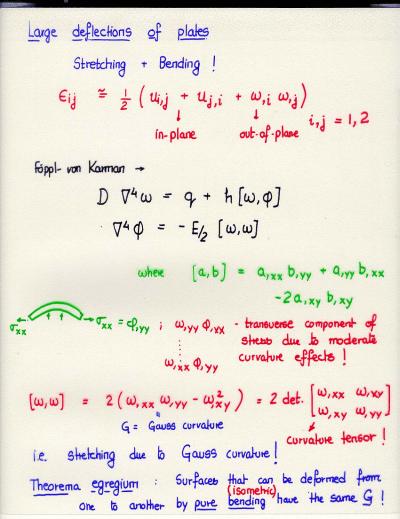 Large deflections of plates
Stretching + Bending !
ϵij ≅ 1/2 ( ui,j + uj,i + ω,i ω,j )
↓ ↓ i,j = 1,2
in-plane out-of-plane
Föppl- von Karman →
D ∇⁴ω = q + h [ω,φ]
∇⁴φ = - E/2 [ω,ω]
where [a,b] = a,xx b,yy + a,yy b,xx
-2a,xy b,xy
σxx σxx = φ,yy ; ω,yy φ,xx - transverse component of
stress due to moderate
ω,xx φ,yy curvature effects !
[ω,ω] = 2 ( ω,xx ω,yy - ω,xy² ) = 2 det. [ ω,xx ω,xy
ω,xy ω,yy ]
G = Gauss curvature
curvature tensor !
i.e. stretching due to Gauss curvature !
Theorema egregium : Surfaces that can be deformed from
one to another by pure bending (isometric) have the same G !